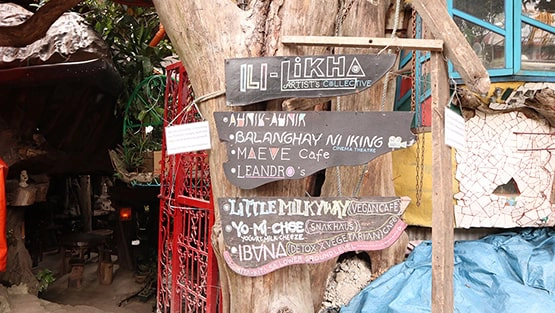 ILI-LIKHA
ARTIST'S COLLECTIVE
• AHNIK-AHNIR
• BALANGHAY NI IKING
CINEMA THEATRE
• MAEVE Cafe
• LEANDRO's
• LITTLE MILKYWAY (VEGAN CAFE)
• YO-MI-CHEE (SNAKHAUS)
• IBANA (DETOX X VEGETARIAN) CAFE